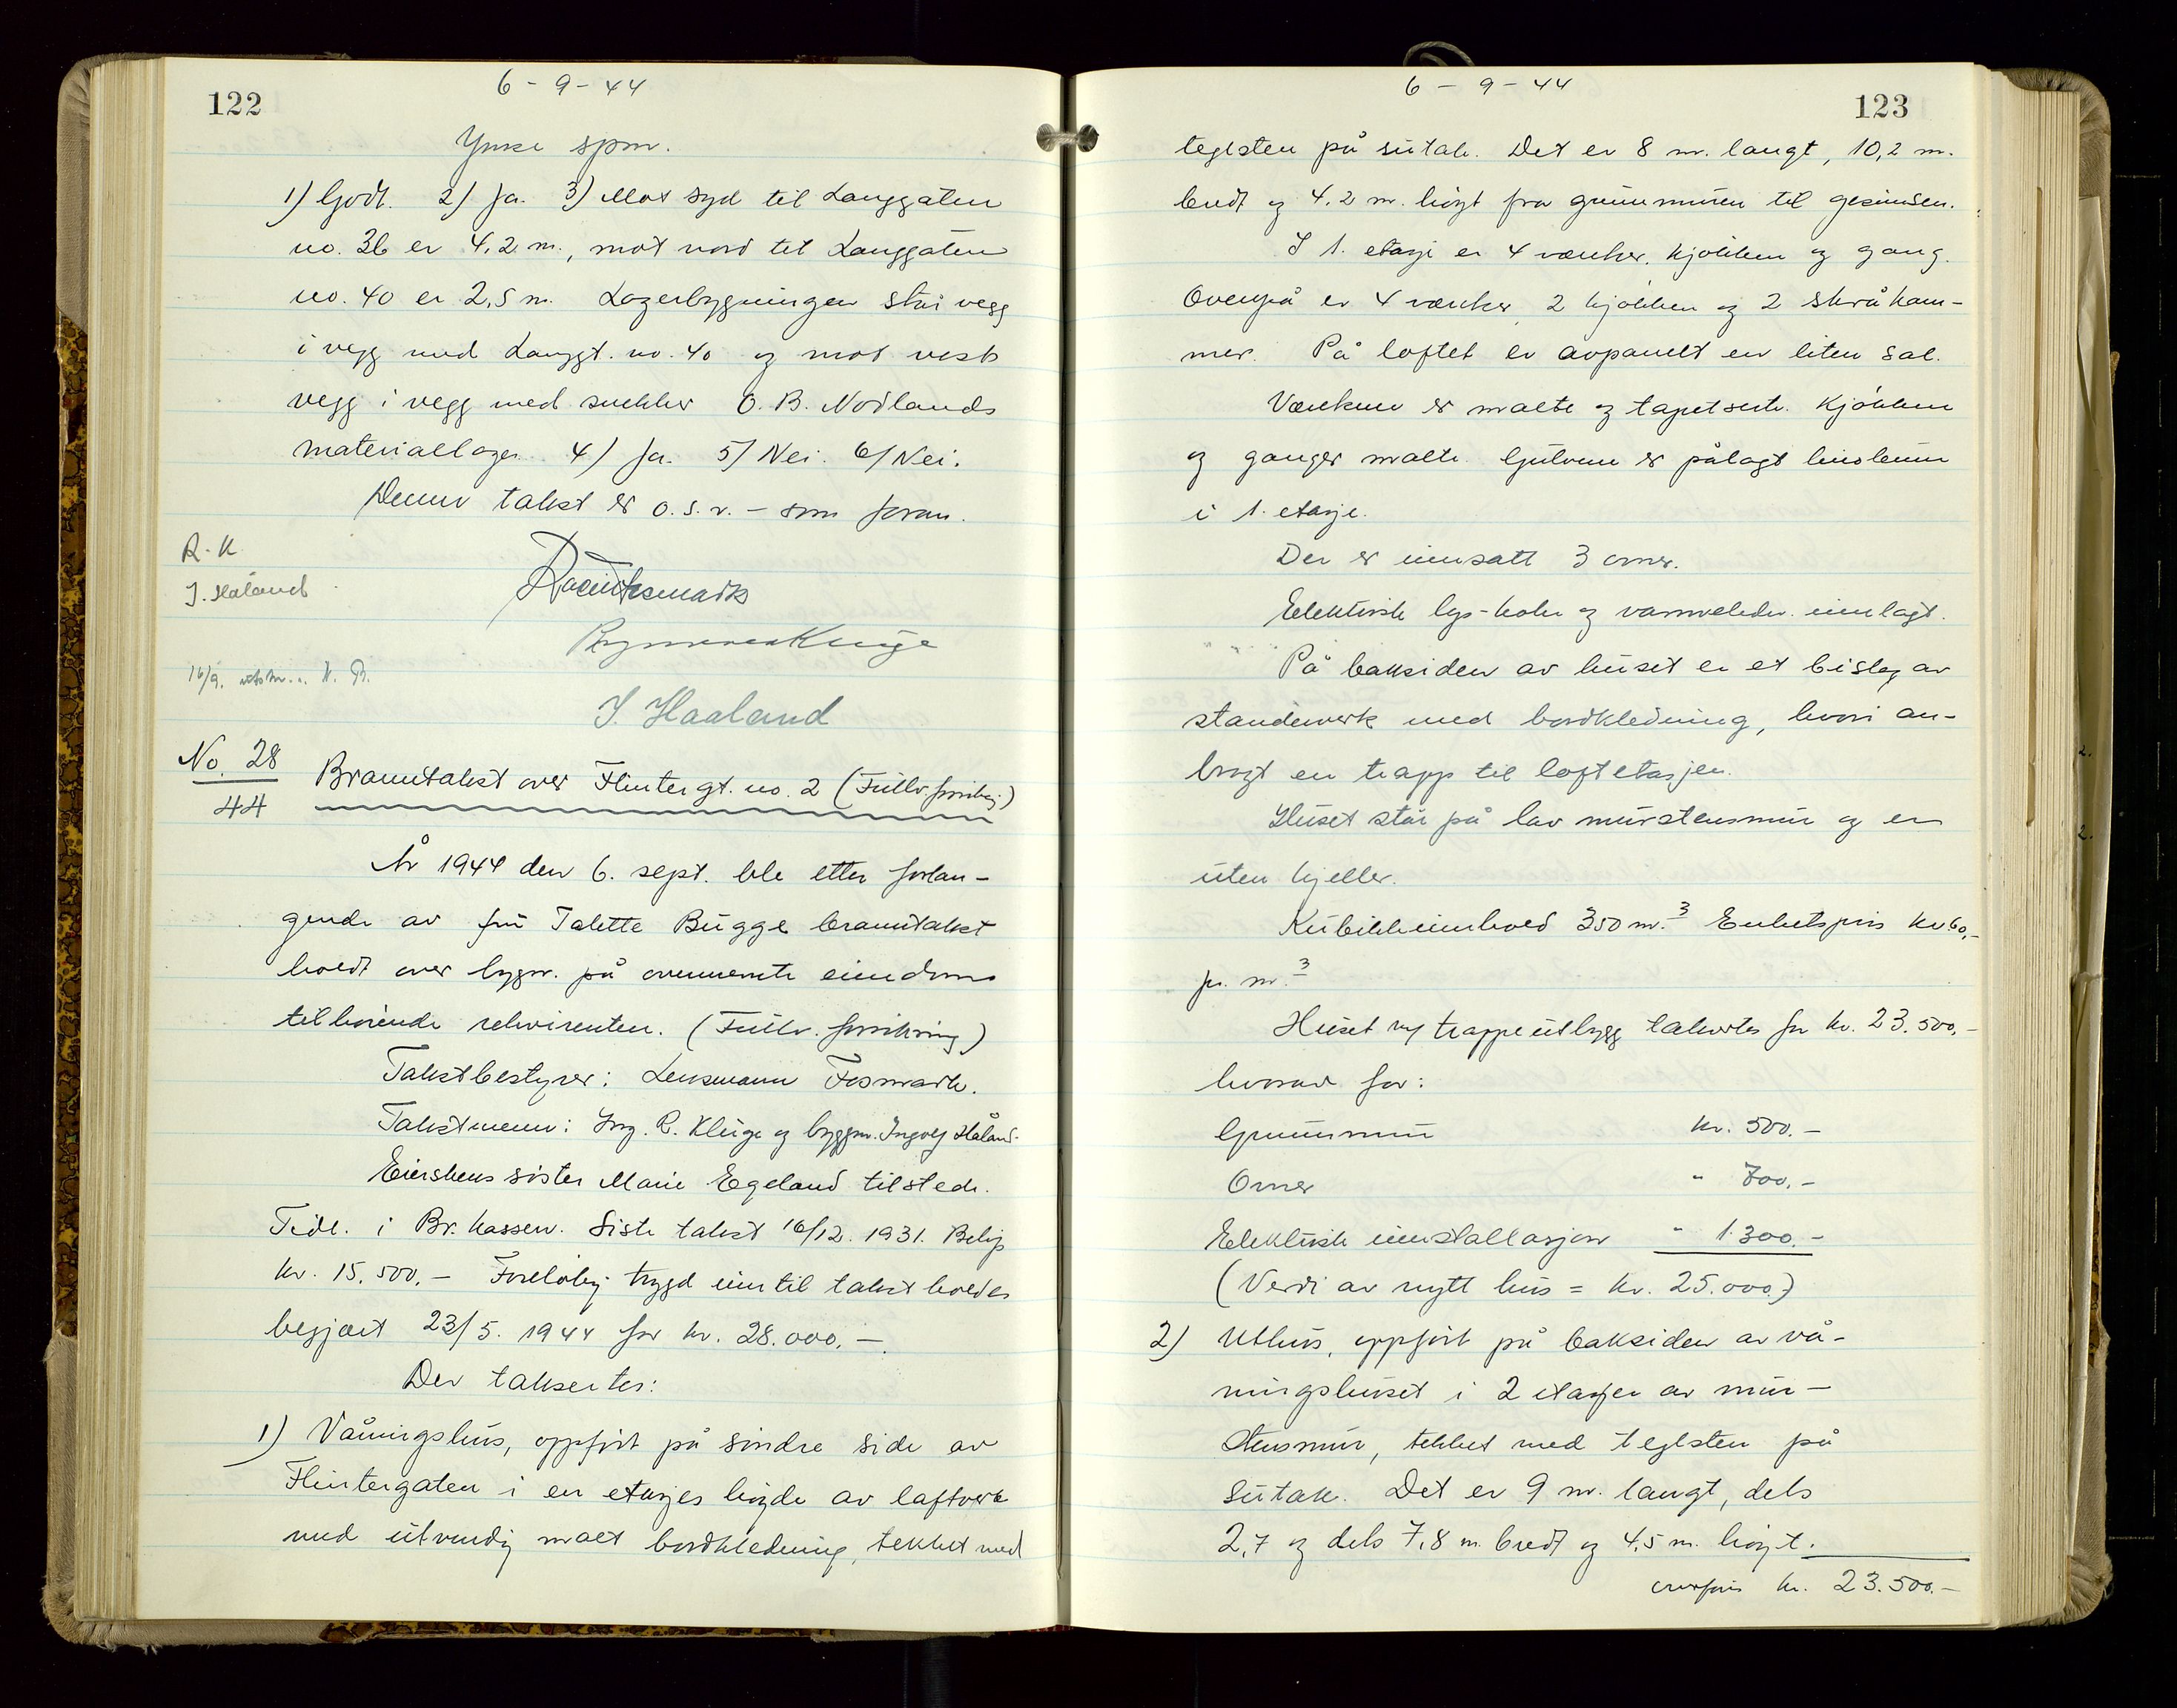 122
6 - 9 - 44
Ymse spm.
1) Godt. 2) Ja. 3) Mot syd til Langgaten
no. 36 er 4,2 m., mot nord til Langgaten
no. 40 er 2,5 m. Lagerbygningen står vegg
i vegg med Langgt. no. 40 og mot vest
vegg i vegg med snekker O. B. Nodlands
materiallager. 4) Ja. 5) Nei. 6) Nei.
Denne takst er o.s.v. - som foran.
R. K
J. Håland
Rasmus Kluge
I. Haaland
16/9.
No. 28
44
Branntakst over Flintergt. no. 2 (Fullv. forsikring)
År 1944 den 6. sept. ble etter forlan-
gende av fru Talette Bugge branntakst
holdt over bygn. på ovennevnte eiendom
tilhørende rekvirenten. (Fullv. forsikring)
Takstbestyrer: Lensmann Fosmark.
Takstmenn: Ing. R. Kluge og byggm. Ingolf Håland.
Eierskens søster Marie Egeland tilstede.
Tidl. i Br. kassen. Siste takst 16/12. 1931. Beløp
kr. 15.500.- Foreløbig trygd inntil takst holdes
begjært 23/5. 1944 for kr. 28.000.-.
Der taksertes:
1) Våningshus, oppført på søndre side av
Flintergaten i en etasjes høyde av laftverk
med utvendig malt bordkledning, tekket med
6 - 9 - 44
123
teglsten på sutak. Det er 8 m. langt, 10,2 m.
bredt og 4,2 m. høyt fra grunnmuren til gesimsen.
I 1. etasje er 4 værelser, kjøkken og gang.
Ovenpå er 4 værelser, 2 kjøkken og 2 skråkam-
mer. På loftet er avpanelt en liten sal.
Værelsene er malte og tapetserte. Kjøkken
og ganger malte. Gulvene er pålagt linoleum
i 1. etasje.
Der er innsatt 3 ovner.
Elektrisk lys- koke og varmeledn. innlagt.
På baksiden av huset er et bislag av
stenderverk med bordkledning, hvori an-
bragt en trapp til loftetasjen.
Huset står på lav murstensmur og er
uten kjeller.
Kubikkinnhold 350 m.³ Enhetspris kr. 60,-
pr. m.³
Huset m/ trappeutbygg takseres for kr. 23.500,-
hvorav for:
Grunnmur kr. 500.-
Ovner " 700.-
Elektrisk installasjon " 1.300.-
(Verdi av nytt hus = kr. 25.000.)
2) Uthus, oppført på baksiden av vå-
ningshuset i 2 etasjer av mur-
stensmur, tekket med teglsten på
sutak. Det er 9 m. langt, dels
2,7 og dels 7,8 m. bredt og 4,5 m. høyt.
overføres kr. 23.500.-